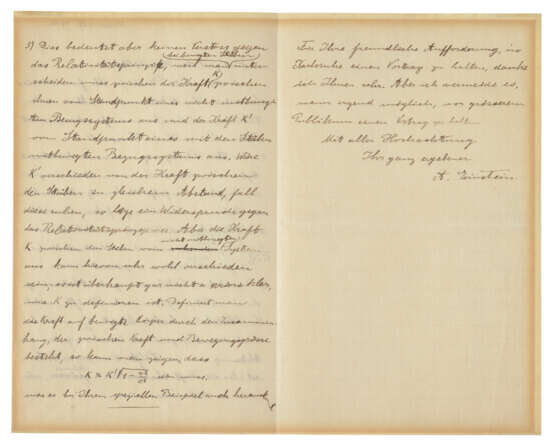 3) Dies bedeutet aber keinen Verstoss gegen
(bewegten Stäben)
das Relativitätsprinzip, weil man unter-
scheiden muss zwischen der Kraft K zwischen
ihnen vom Standpunkt eines nicht mitbeweg-
ten Bezugssystems aus und der Kraft K'
vom Standpunkt eines mit den Stäben
mitbewegten Bezugssystems aus. Wäre
K' verschieden von der Kraft zwischen
den Stäben in gleichem Abstand, falls
diese ruhen, so läge ein Widerspruch gegen
das Relativitätsprinzip vor. Aber die Kraft
nicht mitbewegten
K zwischen den Stäben vom System
aus kann hiervon sehr wohl verschieden
sein, wobei überhaupt gar nicht a priori klar,
wie K zu definieren ist. Definiert man
die Kraft auf bewegte Körper durch den Zusammen-
hang, der zwischen Kraft und Bewegungsgrösse
besteht, so kann man zeigen, dass
K = K' √1 - v²/c² sein muss,
was es bei Ihrem speziellen Beispiel auch herausk
Für Ihre freundliche Aufforderung, in
Karlsruhe einen Vortrag zu halten, danke
ich Ihnen sehr. Aber ich vermeide es,
wenn irgend möglich, vor grösserem
Publikum einen Vortrag zu halten.
Mit aller Hochachtung
Ihr ganz ergebener
A. Einstein.